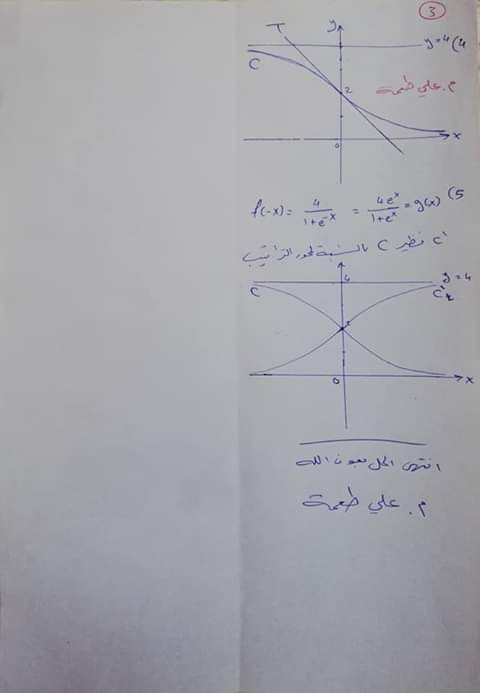 3
T y y = 4 (4
C
2
م. علي طعمة
0 x
f(-x) = 4/(1+e^-x) = 4e^x/(1+e^x) = g(x) (5
C' نظير C بالنسبة لمحور التراتيب
4 y = 4
C C'
2
0 x
انتهى الحل بعون الله
م. علي طعمة